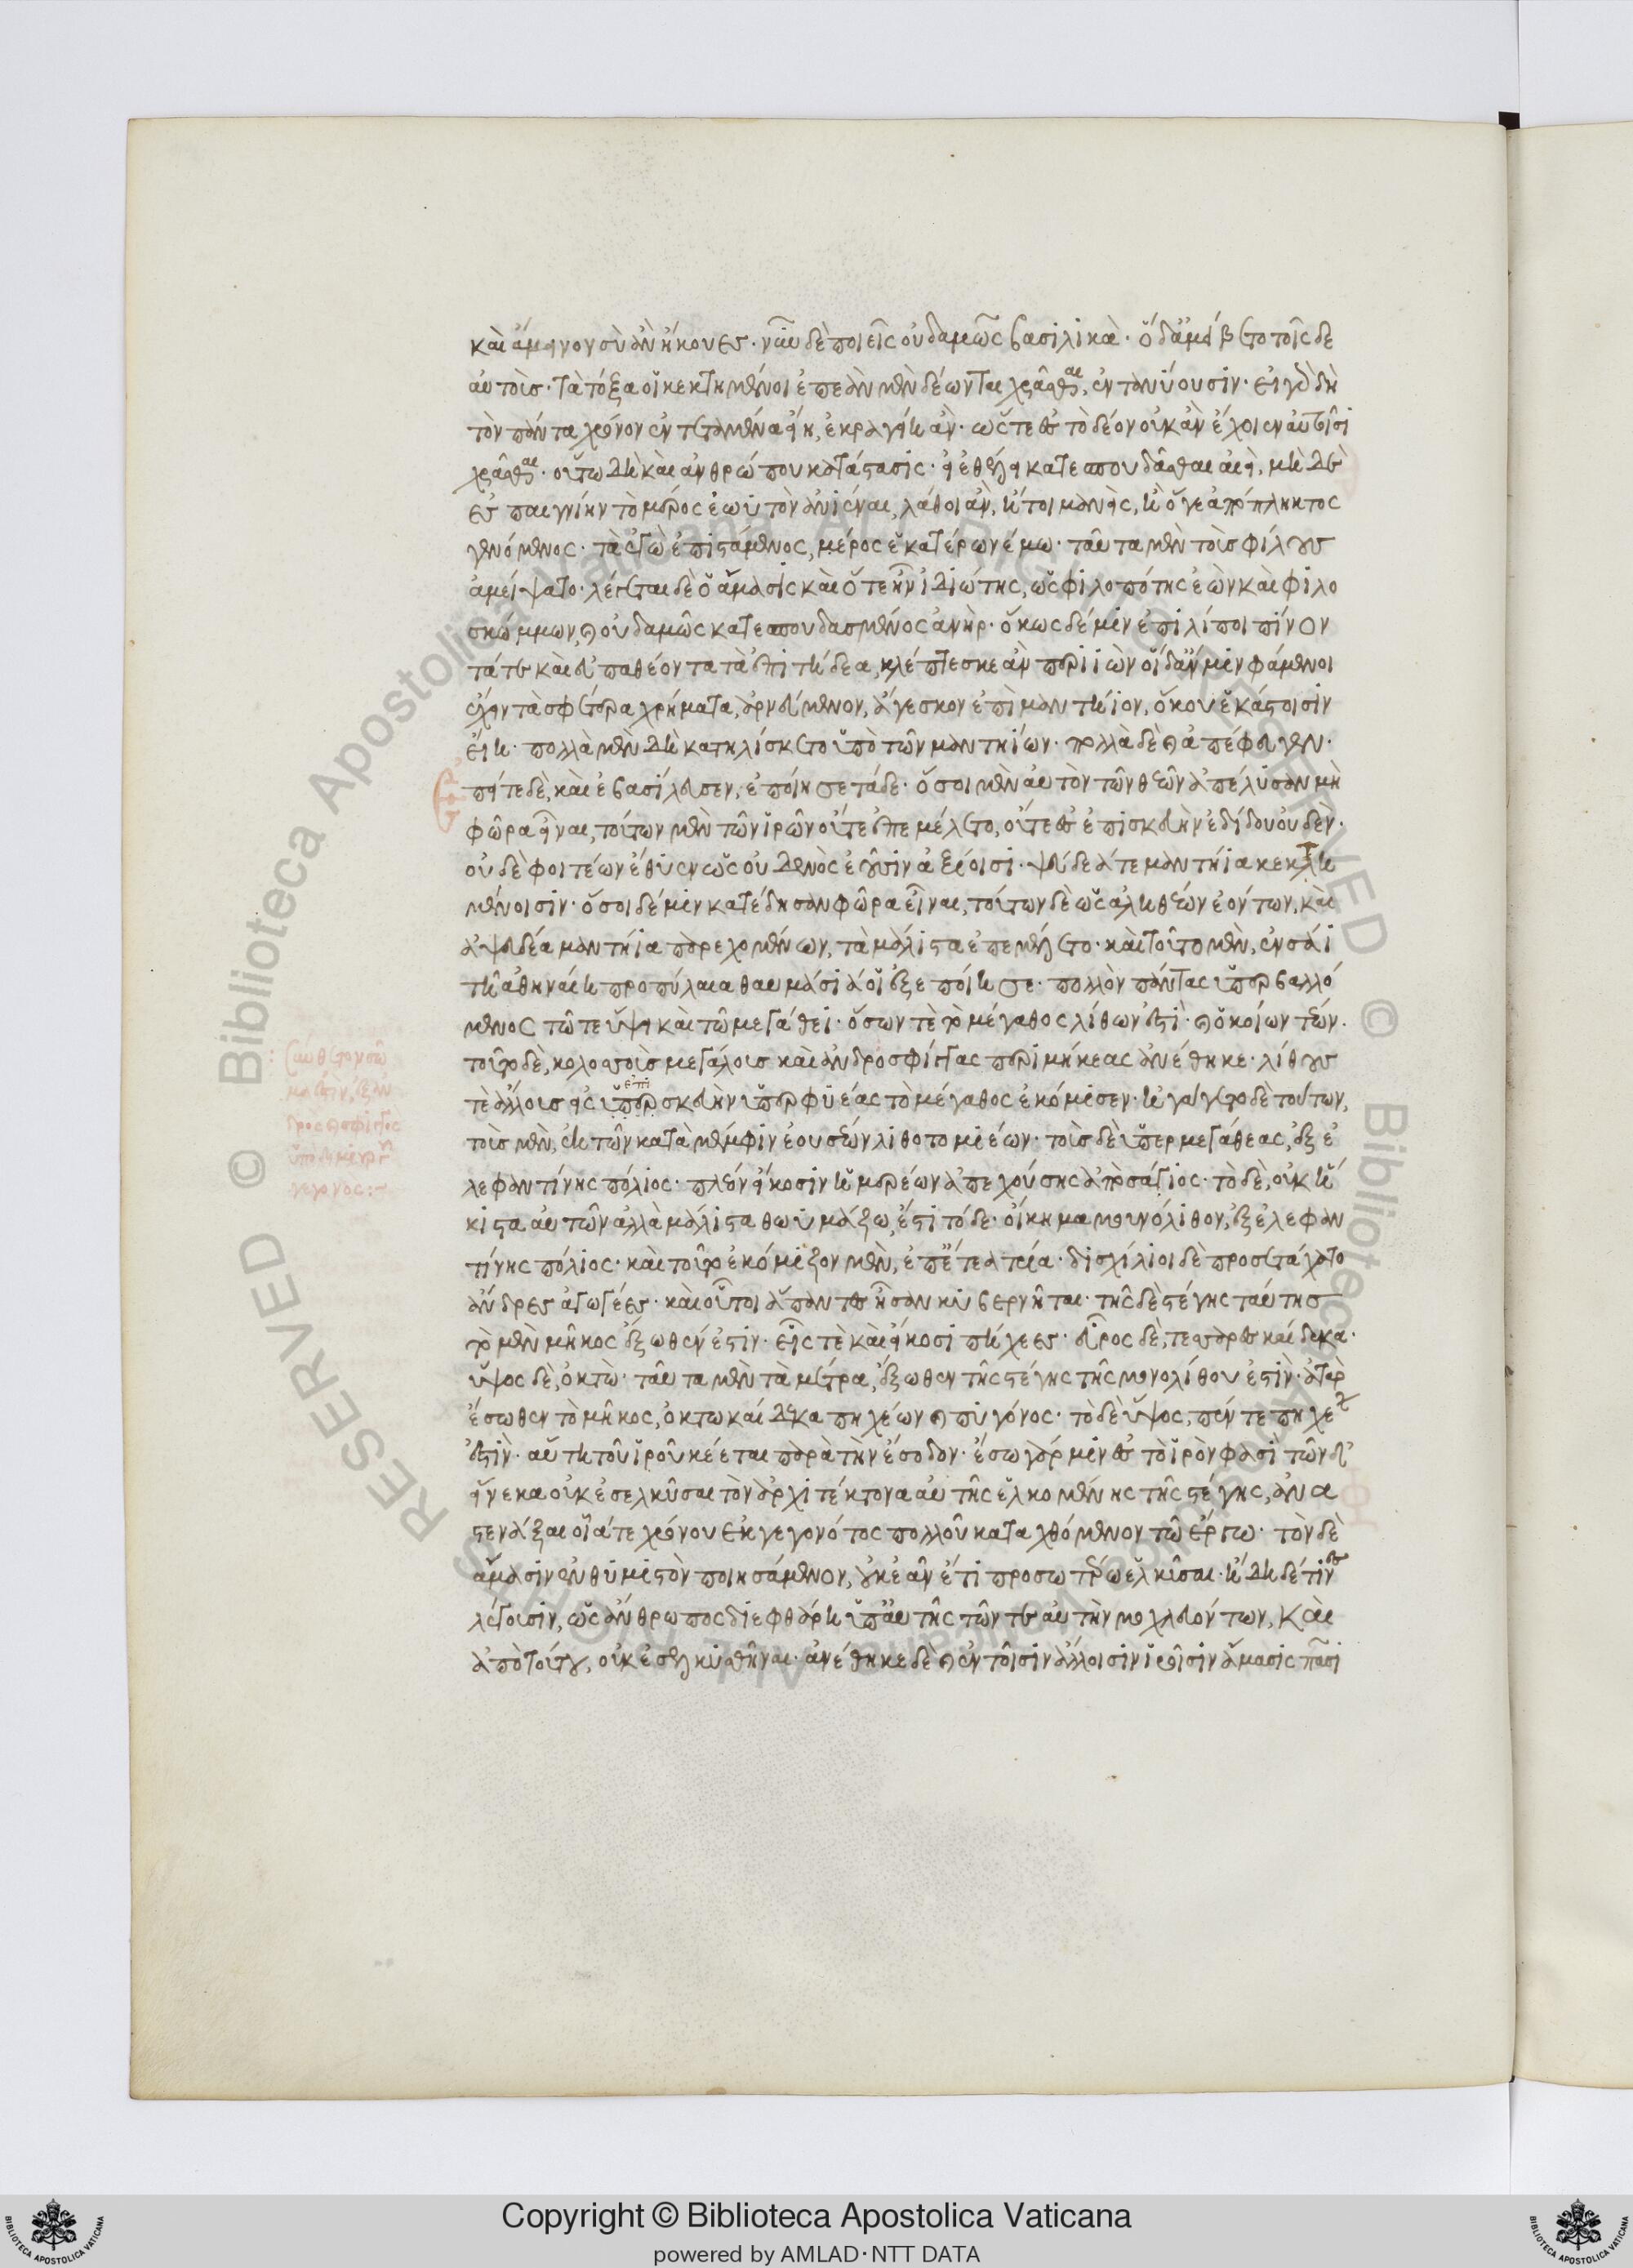 καὶ ἄμεινον σὺ ἂν ἤκουες· νῦν δὲ ποιεῖς οὐδαμῶς βασιλικά· ὁ δ' ἀμείβετο τοῖσδε
αὐτοῖς· τὰ τόξα οἱ κεκτημένοι ἐπεὰν μὲν δέωνται χρᾶσθαι, ἐντανύουσιν· εἰ γὰρ δὴ
τὸν πάντα χρόνον ἐντεταμένα εἴη, ἐκραγείη ἄν· ὥστε ἐς τὸ δέον οὐκ ἂν ἔχοιεν αὐτοῖσι
χρᾶσθαι· οὕτω δὴ καὶ ἀνθρώπου κατάστασις· εἰ ἐθέλει κατεσπουδᾶσθαι αἰεί, μὴ δὲ
ἐς παιγνίην τὸ μέρος ἑωυτὸν ἀνιέναι, λάθοι ἄν, ἤτοι μανείς, ἢ ὅγε ἀπόπληκτος
γενόμενος· τὰ ἐγὼ ἐπιστάμενος, μέρος ἑκατέρω νέμω· ταῦτα μὲν τοὺς φίλους
ἀμείψατο· λέγεται δὲ ὁ ἄμασις καὶ ὅτε ἦν ἰδιώτης, ὡς φιλοπότης ἐὼν καὶ φιλο
σκώμμων, καὶ οὐδαμῶς κατεσπουδασμένος ἀνήρ· ὅκως δέ μιν ἐπιλίποι πίνον
τά τε καὶ εὐπαθέοντα τὰ ἐπιτήδεα, κλέπτεσκε ἂν περιιών· οἱ δ' ἄν μιν φάμενοι
ἔχειν τὰ σφέτερα χρήματα, ἀρνεύμενον, ἄγεσκον ἐπὶ μαντήιον, ὅκου ἑκάστοισιν
εἴη· πολλὰ μὲν δὴ κατηλίσκετο ὑπὸ τῶν μαντηίων· πολλὰ δὲ καὶ ἀπέφευγεν·
ἐπείτε δὲ, καὶ ἐβασίλευσεν, ἐποίησε τάδε· ὅσοι μὲν αὐτὸν τῶν θεῶν ἀπέλυσαν μὴ
φῶρα εἶναι, τούτων μὲν τῶν ἱρῶν οὔτε ἐπεμέλετο, οὔτε ἐς ἐπισκευὴν ἐδίδου οὐδέν·
οὐδὲ φοιτέων ἔθυεν ὡς οὐδενὸς ἐοῦσιν ἀξίοισι· ψευδέα τε μαντήια κεκτη
μένοισιν· ὅσοι δέ μιν κατέδησαν φῶρα εἶναι, τούτων δὲ ὡς ἀληθέων ἐόντων, καὶ
ἀψευδέα μαντήια παρεχομένων, τὰ μάλιστα ἐπεμέλετο· καὶ τοῦτο μὲν, ἐν σάι
τῆ ἀθηναίη προπύλαια θαυμάσια οἱ ἐξεποίησε· πολλὸν πάντας ὑπερβαλλό
μενος τῶ τε ὕψει καὶ τῶ μεγάθει· ὅσων τὲ τὸ μέγαθος λίθων ἐστὶ· καὶ ὁκοίων τέων·
τοῦτο δὲ, κολοσσοὺς μεγάλους καὶ ἀνδρόσφιγγας περιμήκεας ἀνέθηκε· λίθους
τὲ ἄλλους ἐς ἐπισκευὴν ὑπερφυέας τὸ μέγαθος ἐκόμισεν· ἠγάγετο δὲ τούτων,
τοὺς μὲν, ἐκ τῶν κατὰ μέμφιν ἐουσέων λιθοτομιέων· τοὺς δὲ ὑπερμεγάθεας, ἐξ ἐ
λεφαντίνης πόλιος· πλόον εἴκοσιν ἡμερέων ἀπεχούσης ἀπὸ σάιος· τὸ δὲ, οὐκ ἥ
κιστα αὐτῶν ἀλλὰ μάλιστα θωυμάζω, ἐστὶ τόδε· οἴκημα μουνόλιθον, ἐξ ἐλεφαν
τίνης πόλιος· καὶ τοῦτο ἐκόμιζον μὲν, ἐπ' ἔτεα τρία· δισχίλιοι δὲ προσετάχατο
ἄνδρες ἀγωγέες· καὶ οὗτοι ἅπαντες ἦσαν κυβερνῆται· τῆς δὲ στέγης ταύτης
τὸ μὲν μῆκος ἔξωθεν ἐστὶν· εἷς τὲ καὶ εἴκοσι πήχεες· εὖρος δὲ, τεσσαρεσκαίδεκα·
ὕψος δὲ, ὀκτὼ· ταῦτα μὲν τὰ μέτρα, ἔξωθεν τῆς στέγης τῆς μουνολίθου ἐστὶν· ἀτὰρ
ἔσωθεν τὸ μῆκος, ὀκτωκαίδεκα πηχέων καὶ πυγόνος· τὸ δὲ ὕψος, πέντε πηχέων
ἐστὶν· αὕτη τοῦ ἱροῦ κέεται παρὰ τὴν ἔσοδον· ἔσω γάρ μιν ἐς τὸ ἱρὸν φασὶ τῶνδ'
εἵνεκα οὐκ ἐσελκύσαι τὸν ἀρχιτέκτονα αὐτῆς ἑλκομένης τῆς στέγης, ἀνα
στενάξαι οἷά τε χρόνου ἐκγεγονότος πολλοῦ καὶ ἀχθόμενον τῶ ἔργω· τὸν δὲ
ἄμασιν ἐνθυμιστὸν ποιησάμενον, οὐκ ἐᾶν ἔτι προσωτέρω ἑλκῦσαι· ἤδη δέ τινες
λέγουσιν, ὡς ἄνθρωπος διεφθάρη ὑπ' αὐτῆς τῶν τις αὐτὴν μοχλευόντων, καὶ
ἀπὸ τούτου, οὐκ ἐσελκυσθῆναι· ἀνέθηκε δὲ καὶ ἐν τοῖσιν ἄλλοισιν ἱροῖσιν ἄμασις πᾶσι
Copyright © Biblioteca Apostolica Vaticana
powered by AMLAD·NTT DATA